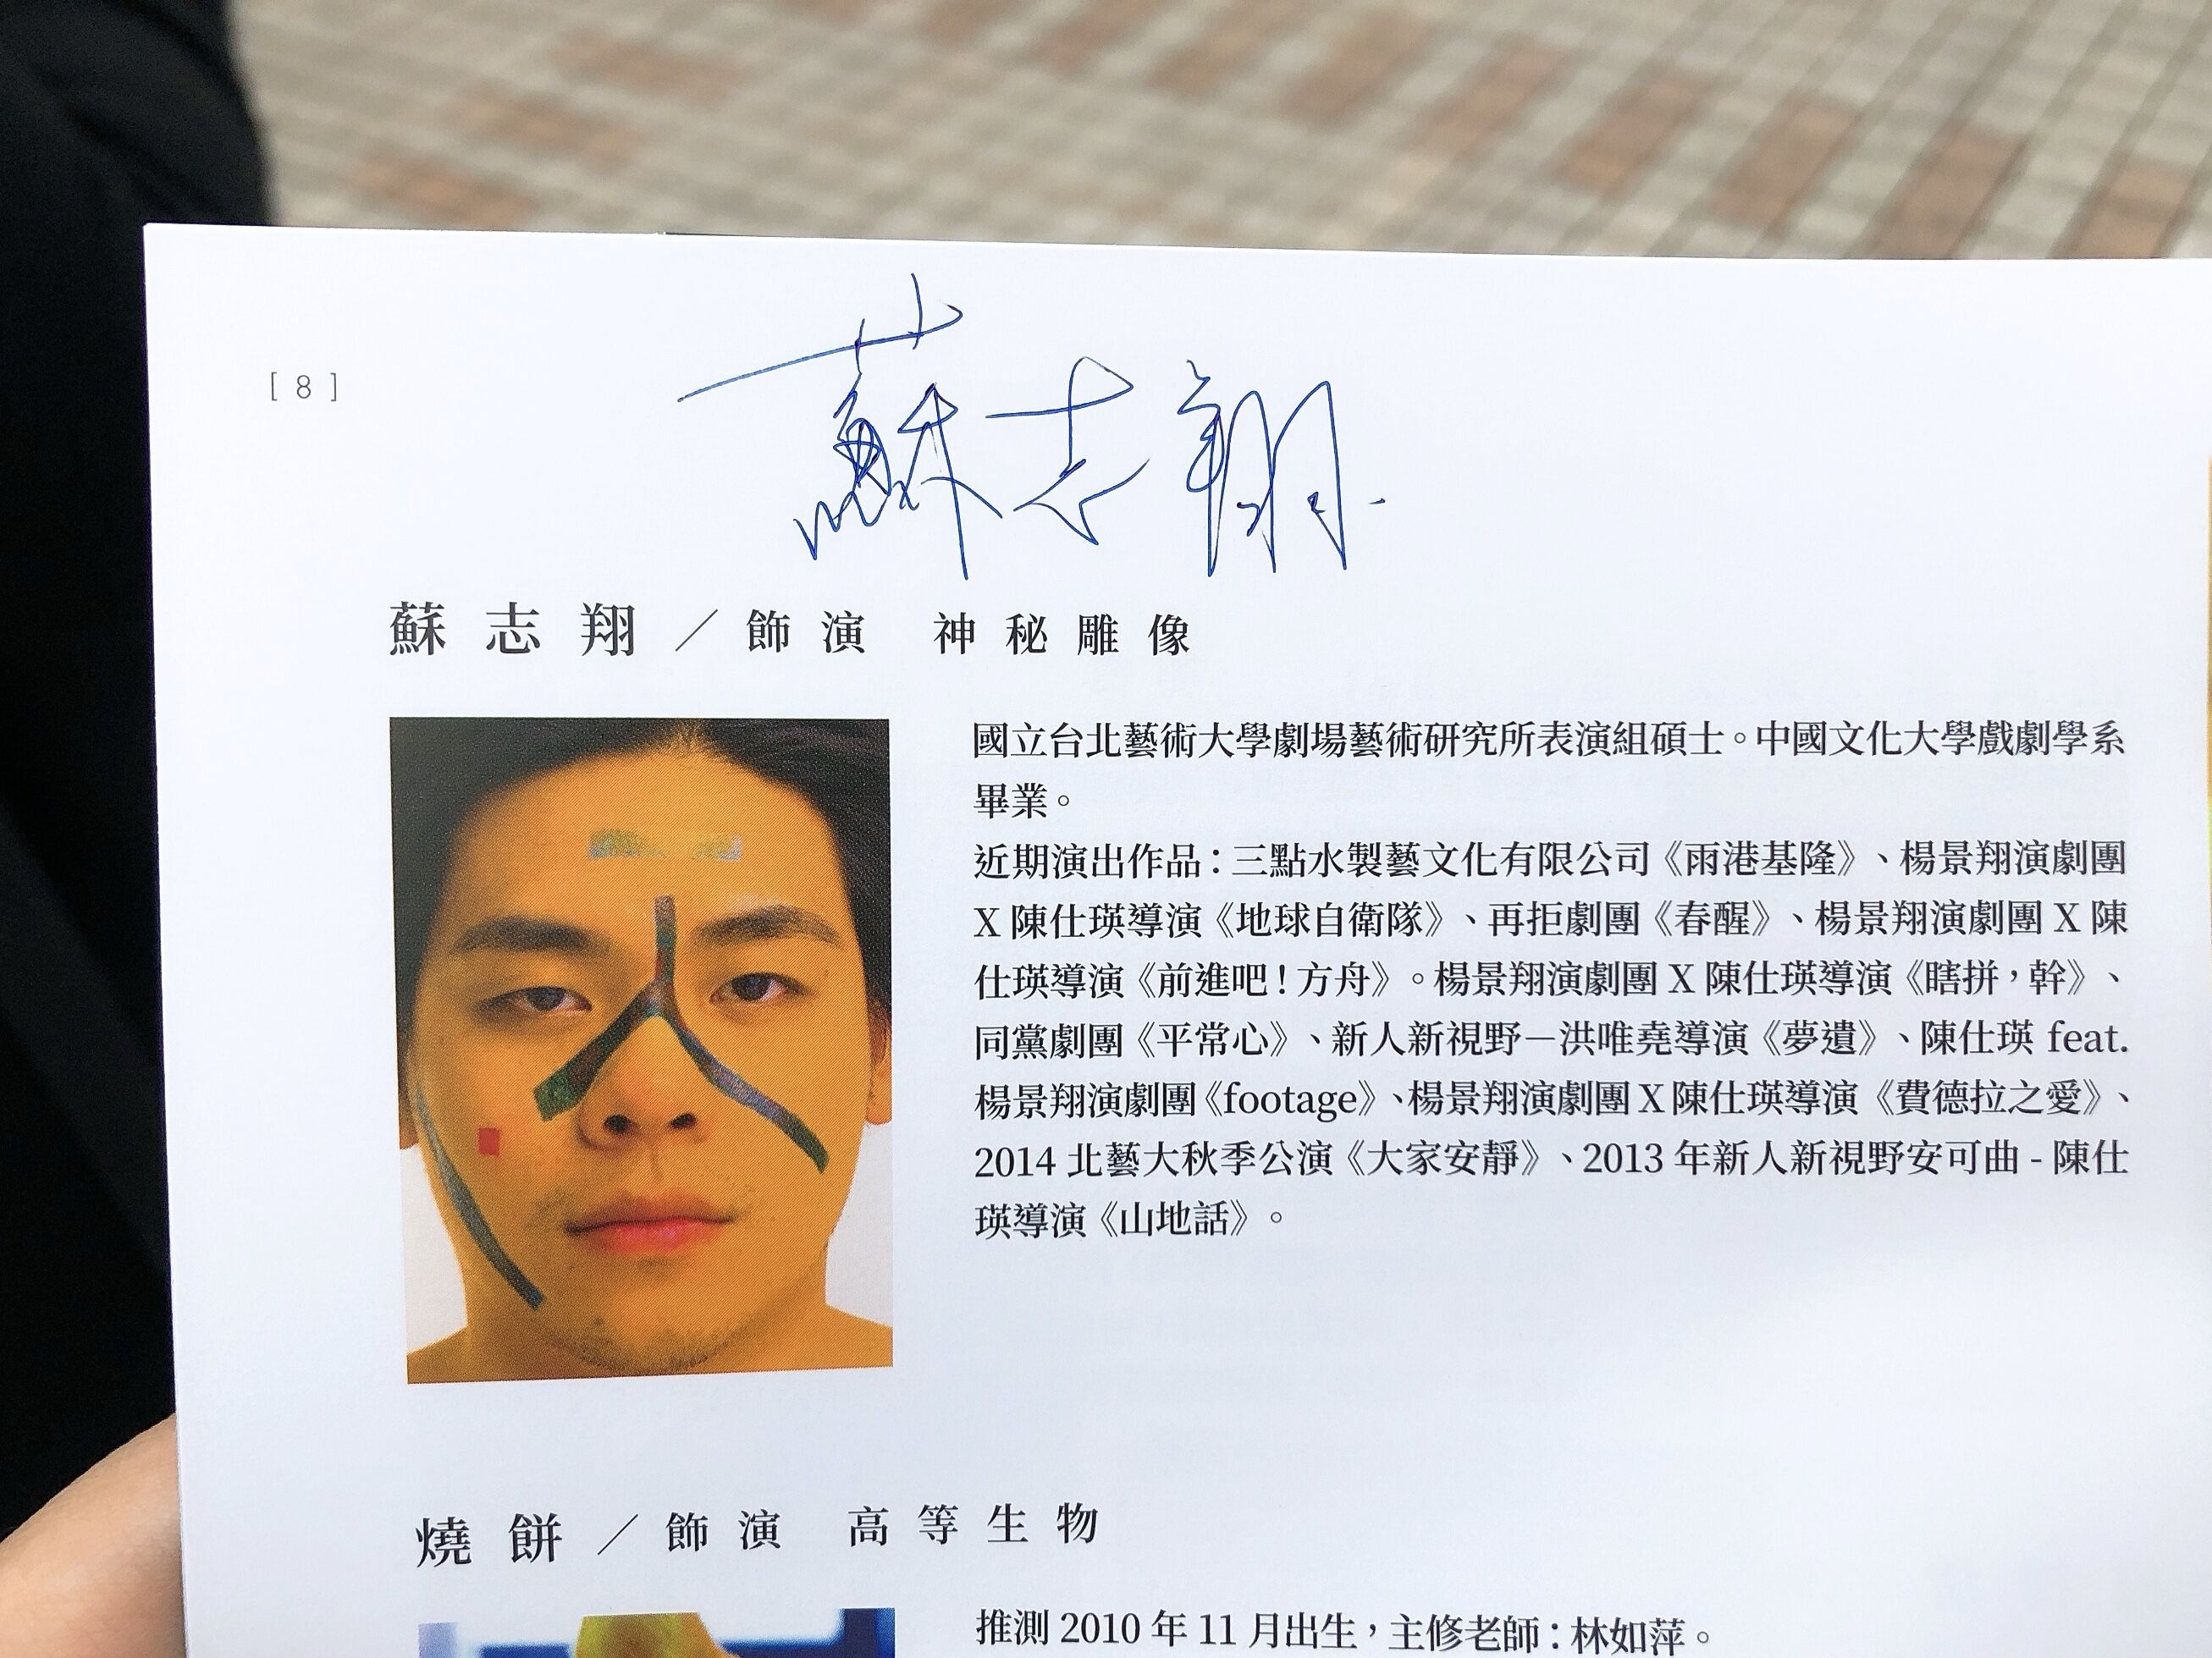 [ 8 ]
蘇志翔
蘇志翔／飾演 神秘雕像
國立台北藝術大學劇場藝術研究所表演組碩士。中國文化大學戲劇學系
畢業。
近期演出作品：三點水製藝文化有限公司《雨港基隆》、楊景翔演劇團
X 陳仕瑛導演《地球自衛隊》、再拒劇團《春醒》、楊景翔演劇團 X 陳
仕瑛導演《前進吧！方舟》。楊景翔演劇團 X 陳仕瑛導演《瞎拼，幹》、
同黨劇團《平常心》、新人新視野—洪唯堯導演《夢遺》、陳仕瑛 feat.
楊景翔演劇團《footage》、楊景翔演劇團 X 陳仕瑛導演《費德拉之愛》、
2014 北藝大秋季公演《大家安靜》、2013 年新人新視野安可曲 - 陳仕
瑛導演《山地話》。
燒餅／飾演 高等生物
推測 2010 年 11 月出生，主修老師：林如萍。